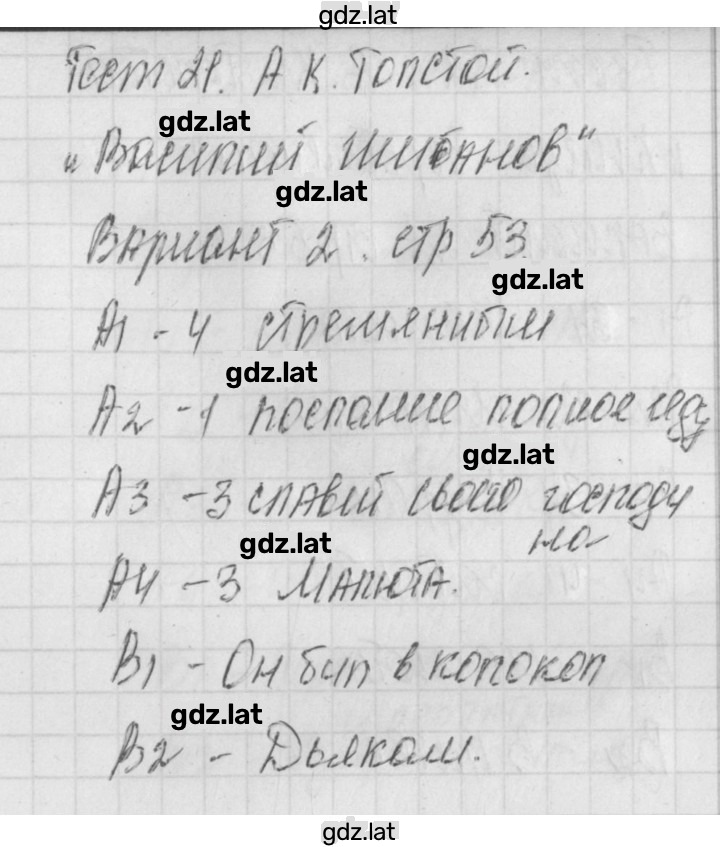 gdz.lat
Тест 21. А К. Толстой.
gdz.lat
„Василий Шибанов"
gdz.lat
Вариант 2. стр 53
gdz.lat
А1 - 4 стремянным
gdz.lat
А2 - 1 послание полное яду
gdz.lat
А3 - 3 славит своего господи
на
gdz.lat
А4 - 3 Малюта.
В1 - Он бил в колокол
gdz.lat
В2 - Дьякам.
gdz.lat